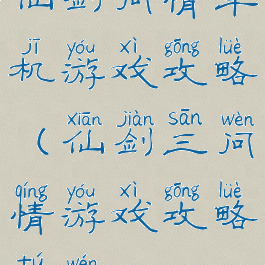 仙剑问情单
jī yóu xì gōng lüè
机游戏攻略
xiān jiàn sān wèn
（仙剑三问
qíng yóu xì gōng lüè
情游戏攻略
tú wén